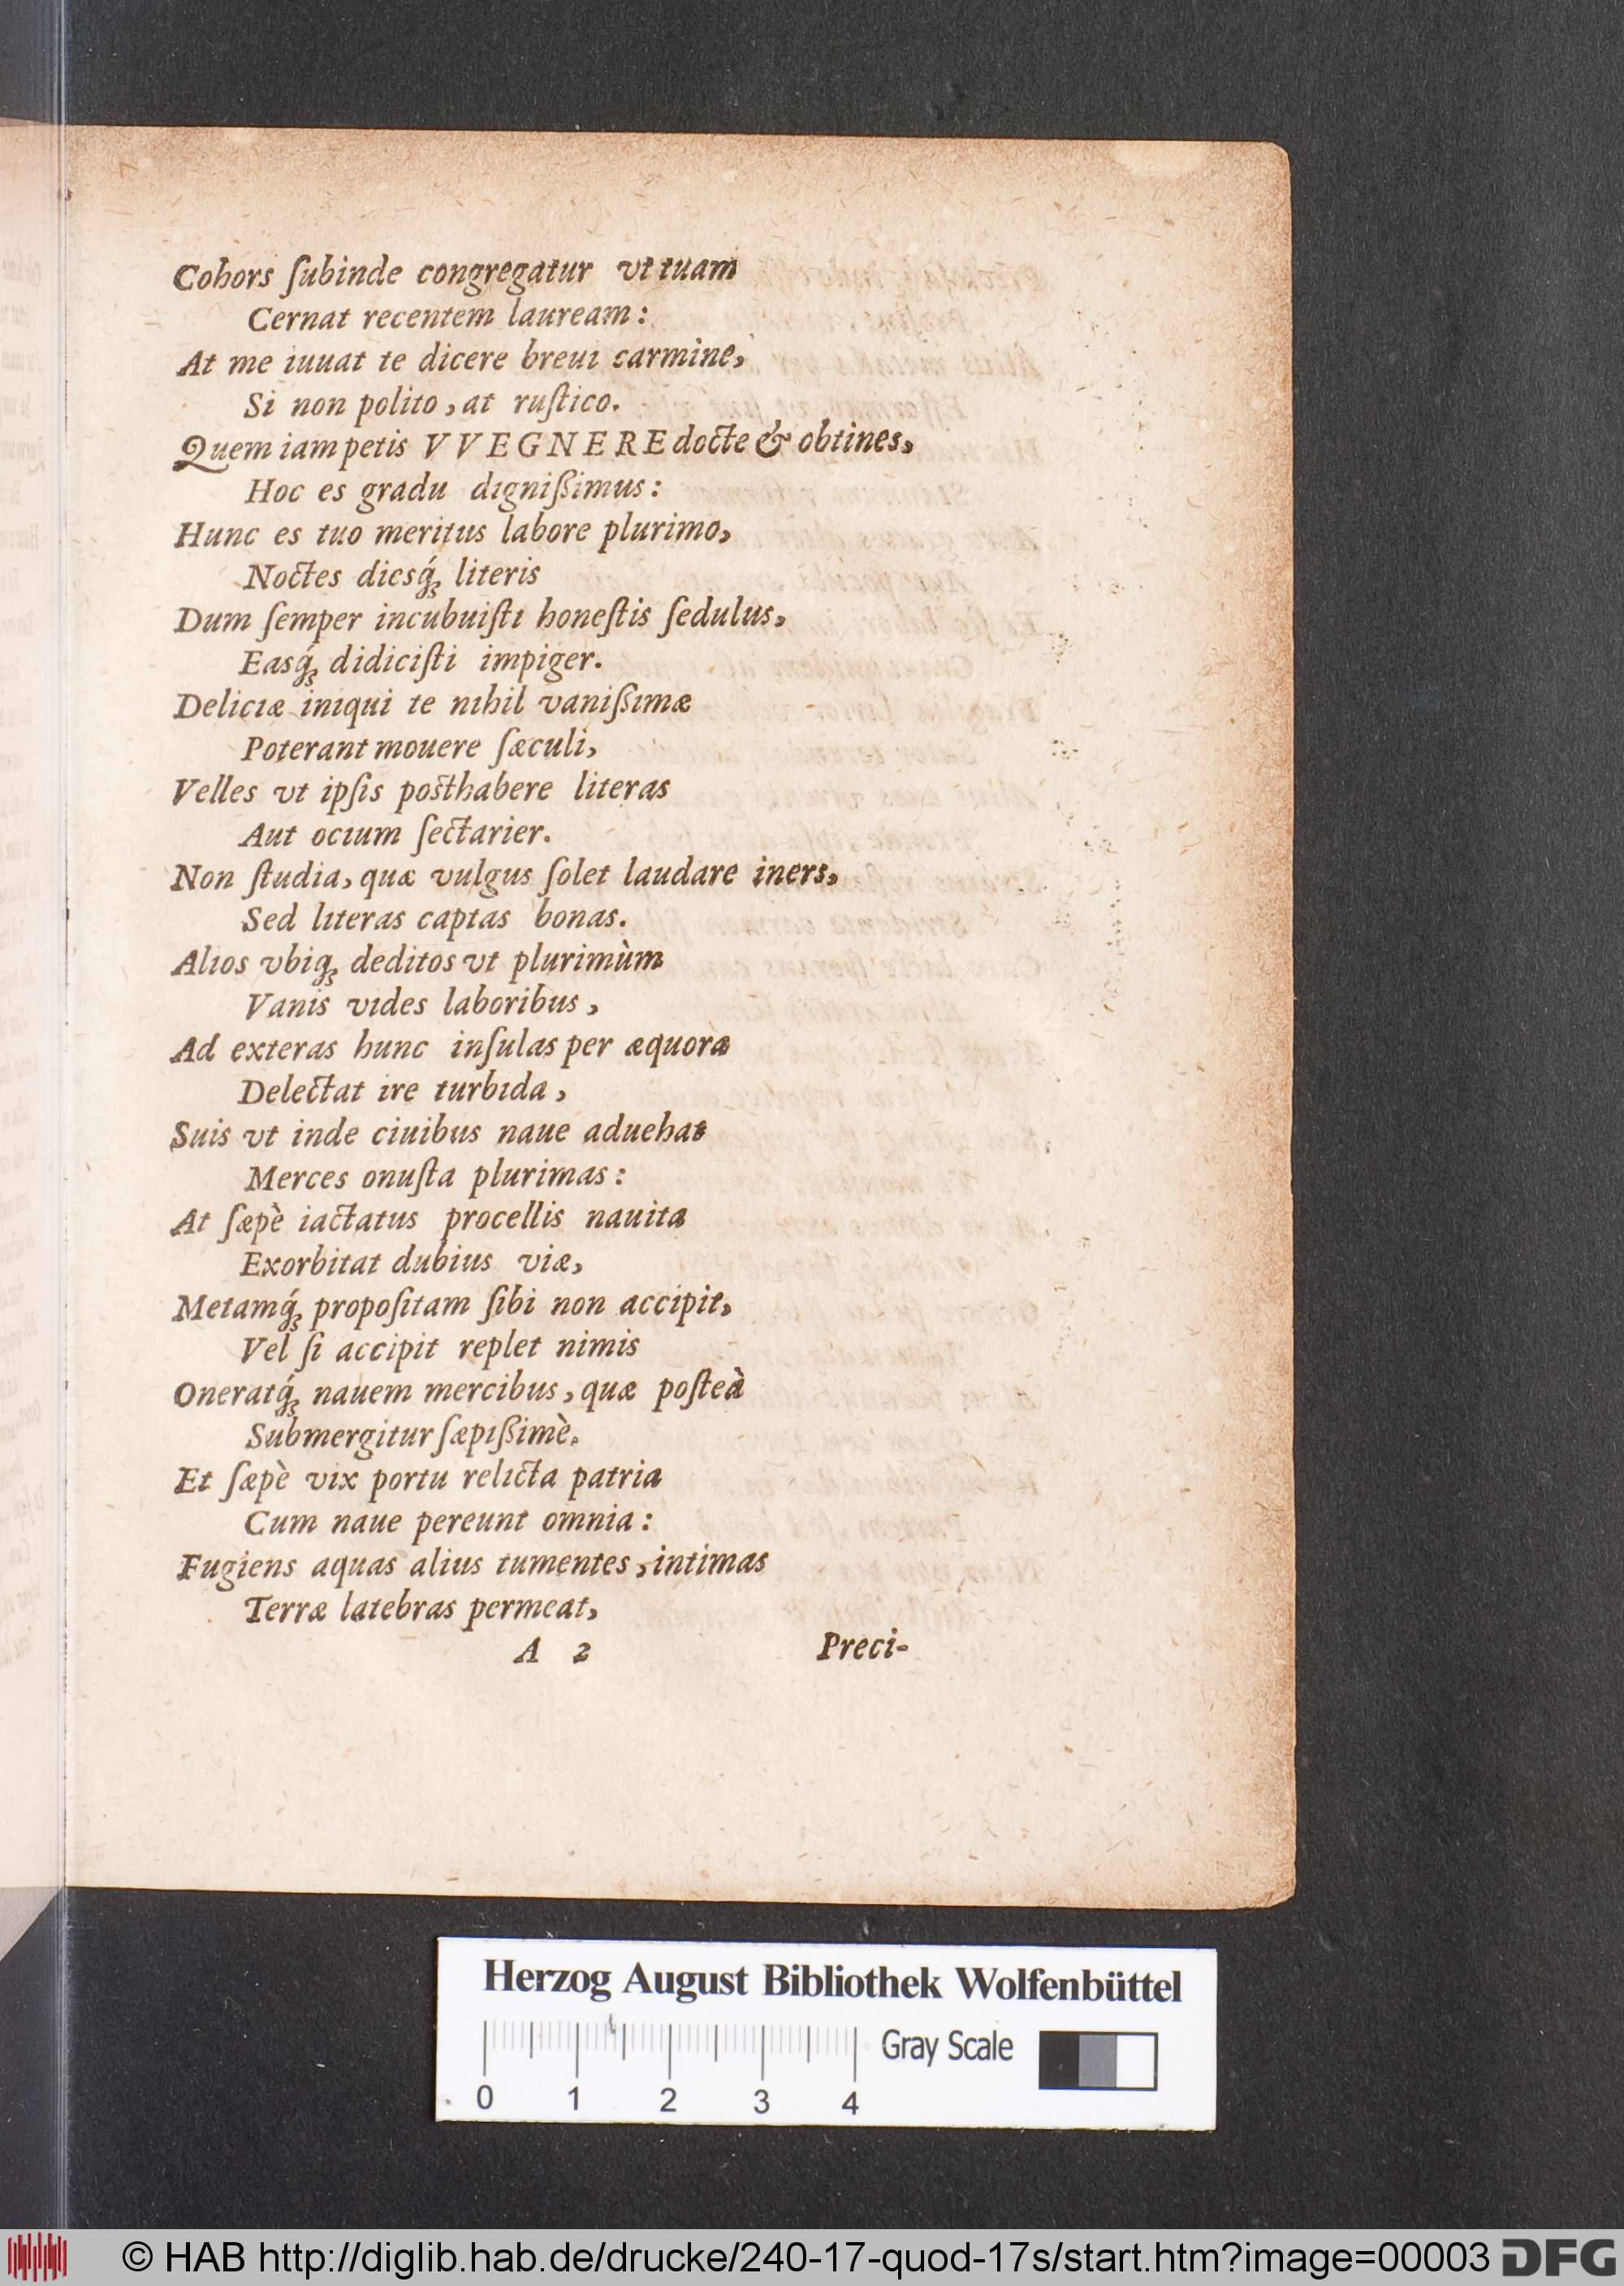 Cohors ſubinde congregatur vt tuam
Cernat recentem lauream:
At me iuuat te dicere breui carmine,
Si non polito, at ruſtico.
Quem iam petis VVEGNERE docte & obtines,
Hoc es gradu digniſſimus:
Hunc es tuo meritus labore plurimo,
Noctes diesq́ꝫ literis
Dum ſemper incubuiſti honeſtis ſedulus,
Easq́ꝫ didiciſti impiger.
Deliciæ iniqui te nihil vaniſſimæ
Poterant mouere ſæculi,
Velles vt ipſis posthabere literas
Aut ocium ſectarier.
Non ſtudia, quæ vulgus ſolet laudare iners,
Sed literas captas bonas.
Alios vbiqꝫ deditos vt plurimùm
Vanis vides laboribus,
Ad exteras hunc inſulas per æquora
Delectat ire turbida,
Suis vt inde ciuibus naue aduehat
Merces onuſta plurimas:
At ſæpè iactatus procellis nauita
Exorbitat dubius viæ,
Metamq́ꝫ propoſitam ſibi non accipit,
Vel ſi accipit replet nimis
Oneratq́ꝫ nauem mercibus, quæ poſteà
Submergitur ſæpiſſimè.
Et ſæpè vix portu relicta patria
Cum naue pereunt omnia:
Fugiens aquas alius tumentes, intimas
Terræ latebras permeat,
A 2 Preci-
Herzog August Bibliothek Wolfenbüttel
Gray Scale
0 1 2 3 4
© HAB http://diglib.hab.de/drucke/240-17-quod-17s/start.htm?image=00003 DFG